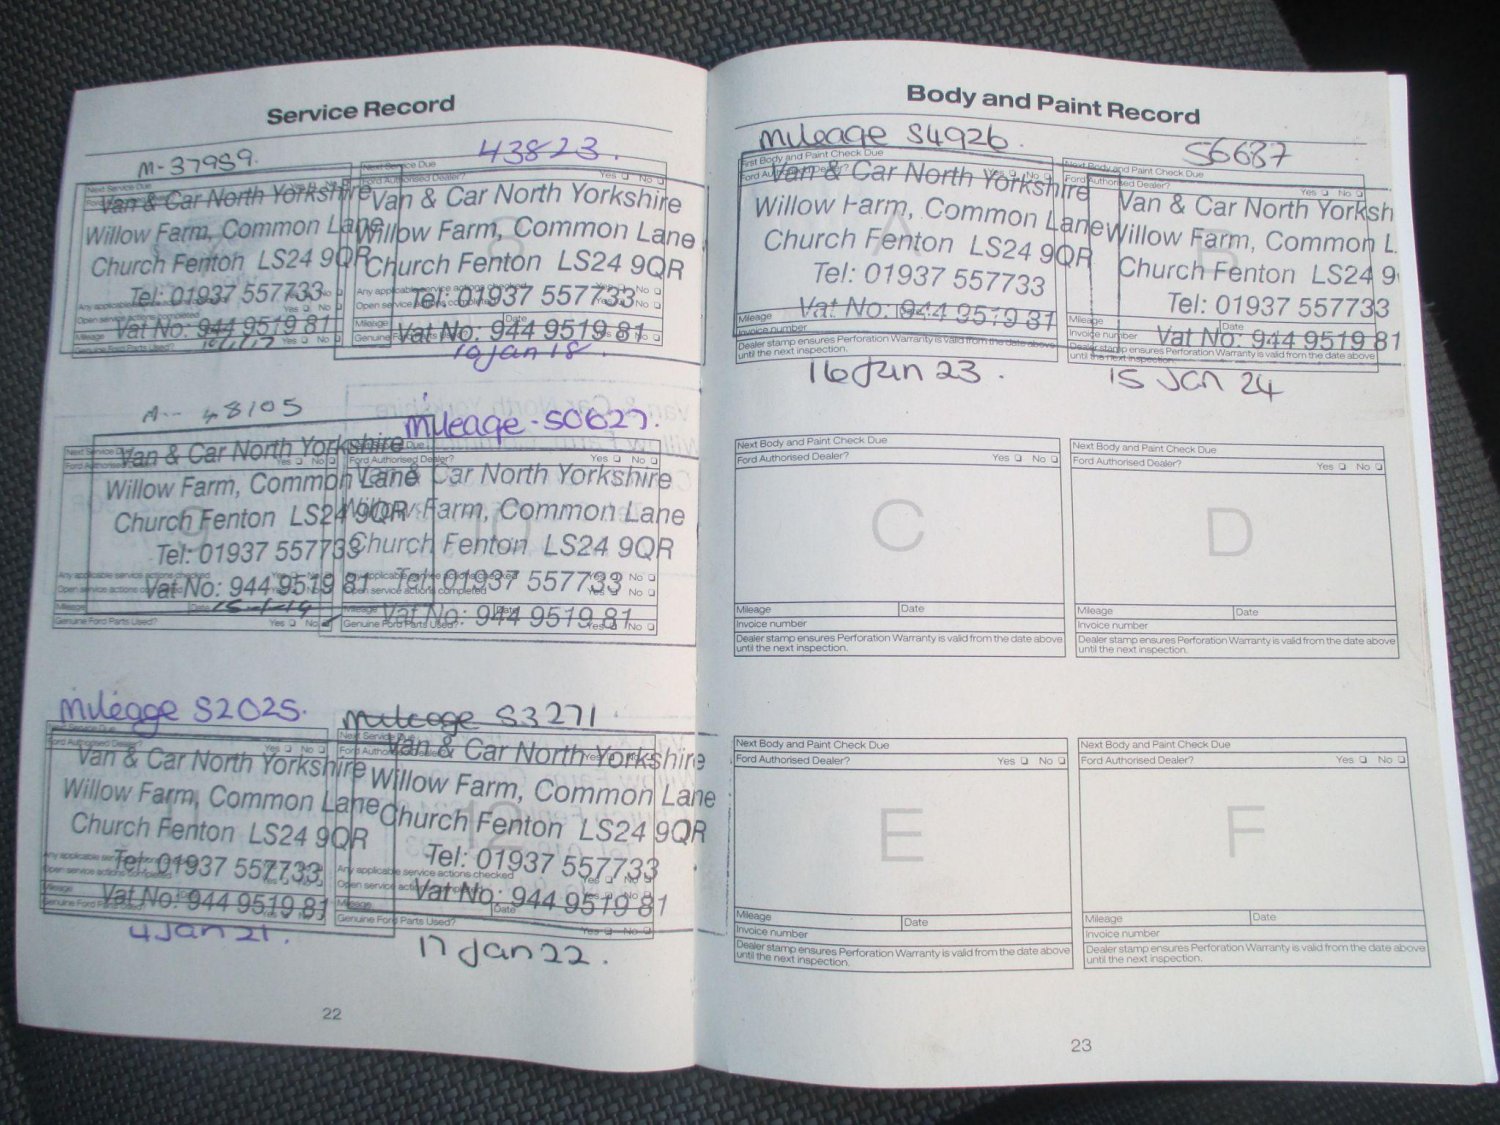 Service Record
M-37959.
Next Service Due
Van & Car North Yorkshire
Willow Farm, Common Lane
Church Fenton LS24 9QR
Tel: 01937 557733
Any applicable
Open service actions completed
Yes No
Vat No: 944 9519 81
Mileage
Genuine Ford Parts Used? Yes No
43823.
Next Service Due
Ford Authorised Dealer? Yes No
Van & Car North Yorkshire
Willow Farm, Common Lane
Church Fenton LS24 9QR
Any applicable service actions checked Yes No
Tel: 01937 557733
Open service actions completed Yes No
Mileage Date
Vat No: 944 9519 81
Genuine Ford
Jan 18.
48105
Van & Car North Yorkshire
Yes No
Willow Farm, Common Lane
Church Fenton LS24 9QR
Tel: 01937 557733
Any applicable service actions checked
Open service actions completed
Vat No: 944 9519 81
Mileage Date 15-1-19
Genuine Ford Parts Used? Yes No
Mileage - 50627.
Ford Authorised Dealer? Yes No
Van & Car North Yorkshire
Willow Farm, Common Lane
Church Fenton LS24 9QR
Tel: 01937 557733
Open service actions completed Yes No
Mileage Date
Vat No: 944 9519 81
Genuine Ford Parts Used? Yes No
Mileage 52025.
Next Service Due
Ford Authorised Dealer? Yes No
Van & Car North Yorkshire
Willow Farm, Common Lane
Church Fenton LS24 9QR
Tel: 01937 557733
Vat No: 944 9519 81
Mileage
4 Jan 21.
Mileage 53271.
Next Service Due
Van & Car North Yorkshire
Willow Farm, Common Lane
12
Church Fenton LS24 9QR
Tel: 01937 557733
Any applicable service actions checked
Yes No
Vat No: 944 9519 81
Mileage Date
Genuine Ford Parts Used? Yes No
17 Jan 22.
22
Body and Paint Record
Mileage 54926.
First Body and Paint Check Due
Van & Car North Yorkshire
Willow Farm, Common Lane
A
Church Fenton LS24 9QR
Tel: 01937 557733
Vat No: 944 9519 81
Mileage
Invoice number
Dealer stamp ensures Perforation Warranty is valid from the date above
until the next inspection.
16 Jan 23.
56687
Next Body and Paint Check Due
Ford Authorised Dealer? Yes No
Van & Car North Yorksh
Willow Farm, Common L
B
Church Fenton LS24 9
Tel: 01937 557733
Mileage Date
Invoice number
Vat No: 944 9519 81
Dealer stamp ensures Perforation Warranty is valid from the date above
until the next inspection.
15 Jan 24
Next Body and Paint Check Due
Ford Authorised Dealer? Yes No
C
Mileage Date
Invoice number
Dealer stamp ensures Perforation Warranty is valid from the date above
until the next inspection.
Next Body and Paint Check Due
Ford Authorised Dealer? Yes No
D
Mileage Date
Invoice number
Dealer stamp ensures Perforation Warranty is valid from the date above
until the next inspection.
Next Body and Paint Check Due
Ford Authorised Dealer? Yes No
E
Mileage Date
Invoice number
Dealer stamp ensures Perforation Warranty is valid from the date above
until the next inspection.
Next Body and Paint Check Due
Ford Authorised Dealer? Yes No
F
Mileage Date
Invoice number
Dealer stamp ensures Perforation Warranty is valid from the date above
until the next inspection.
23